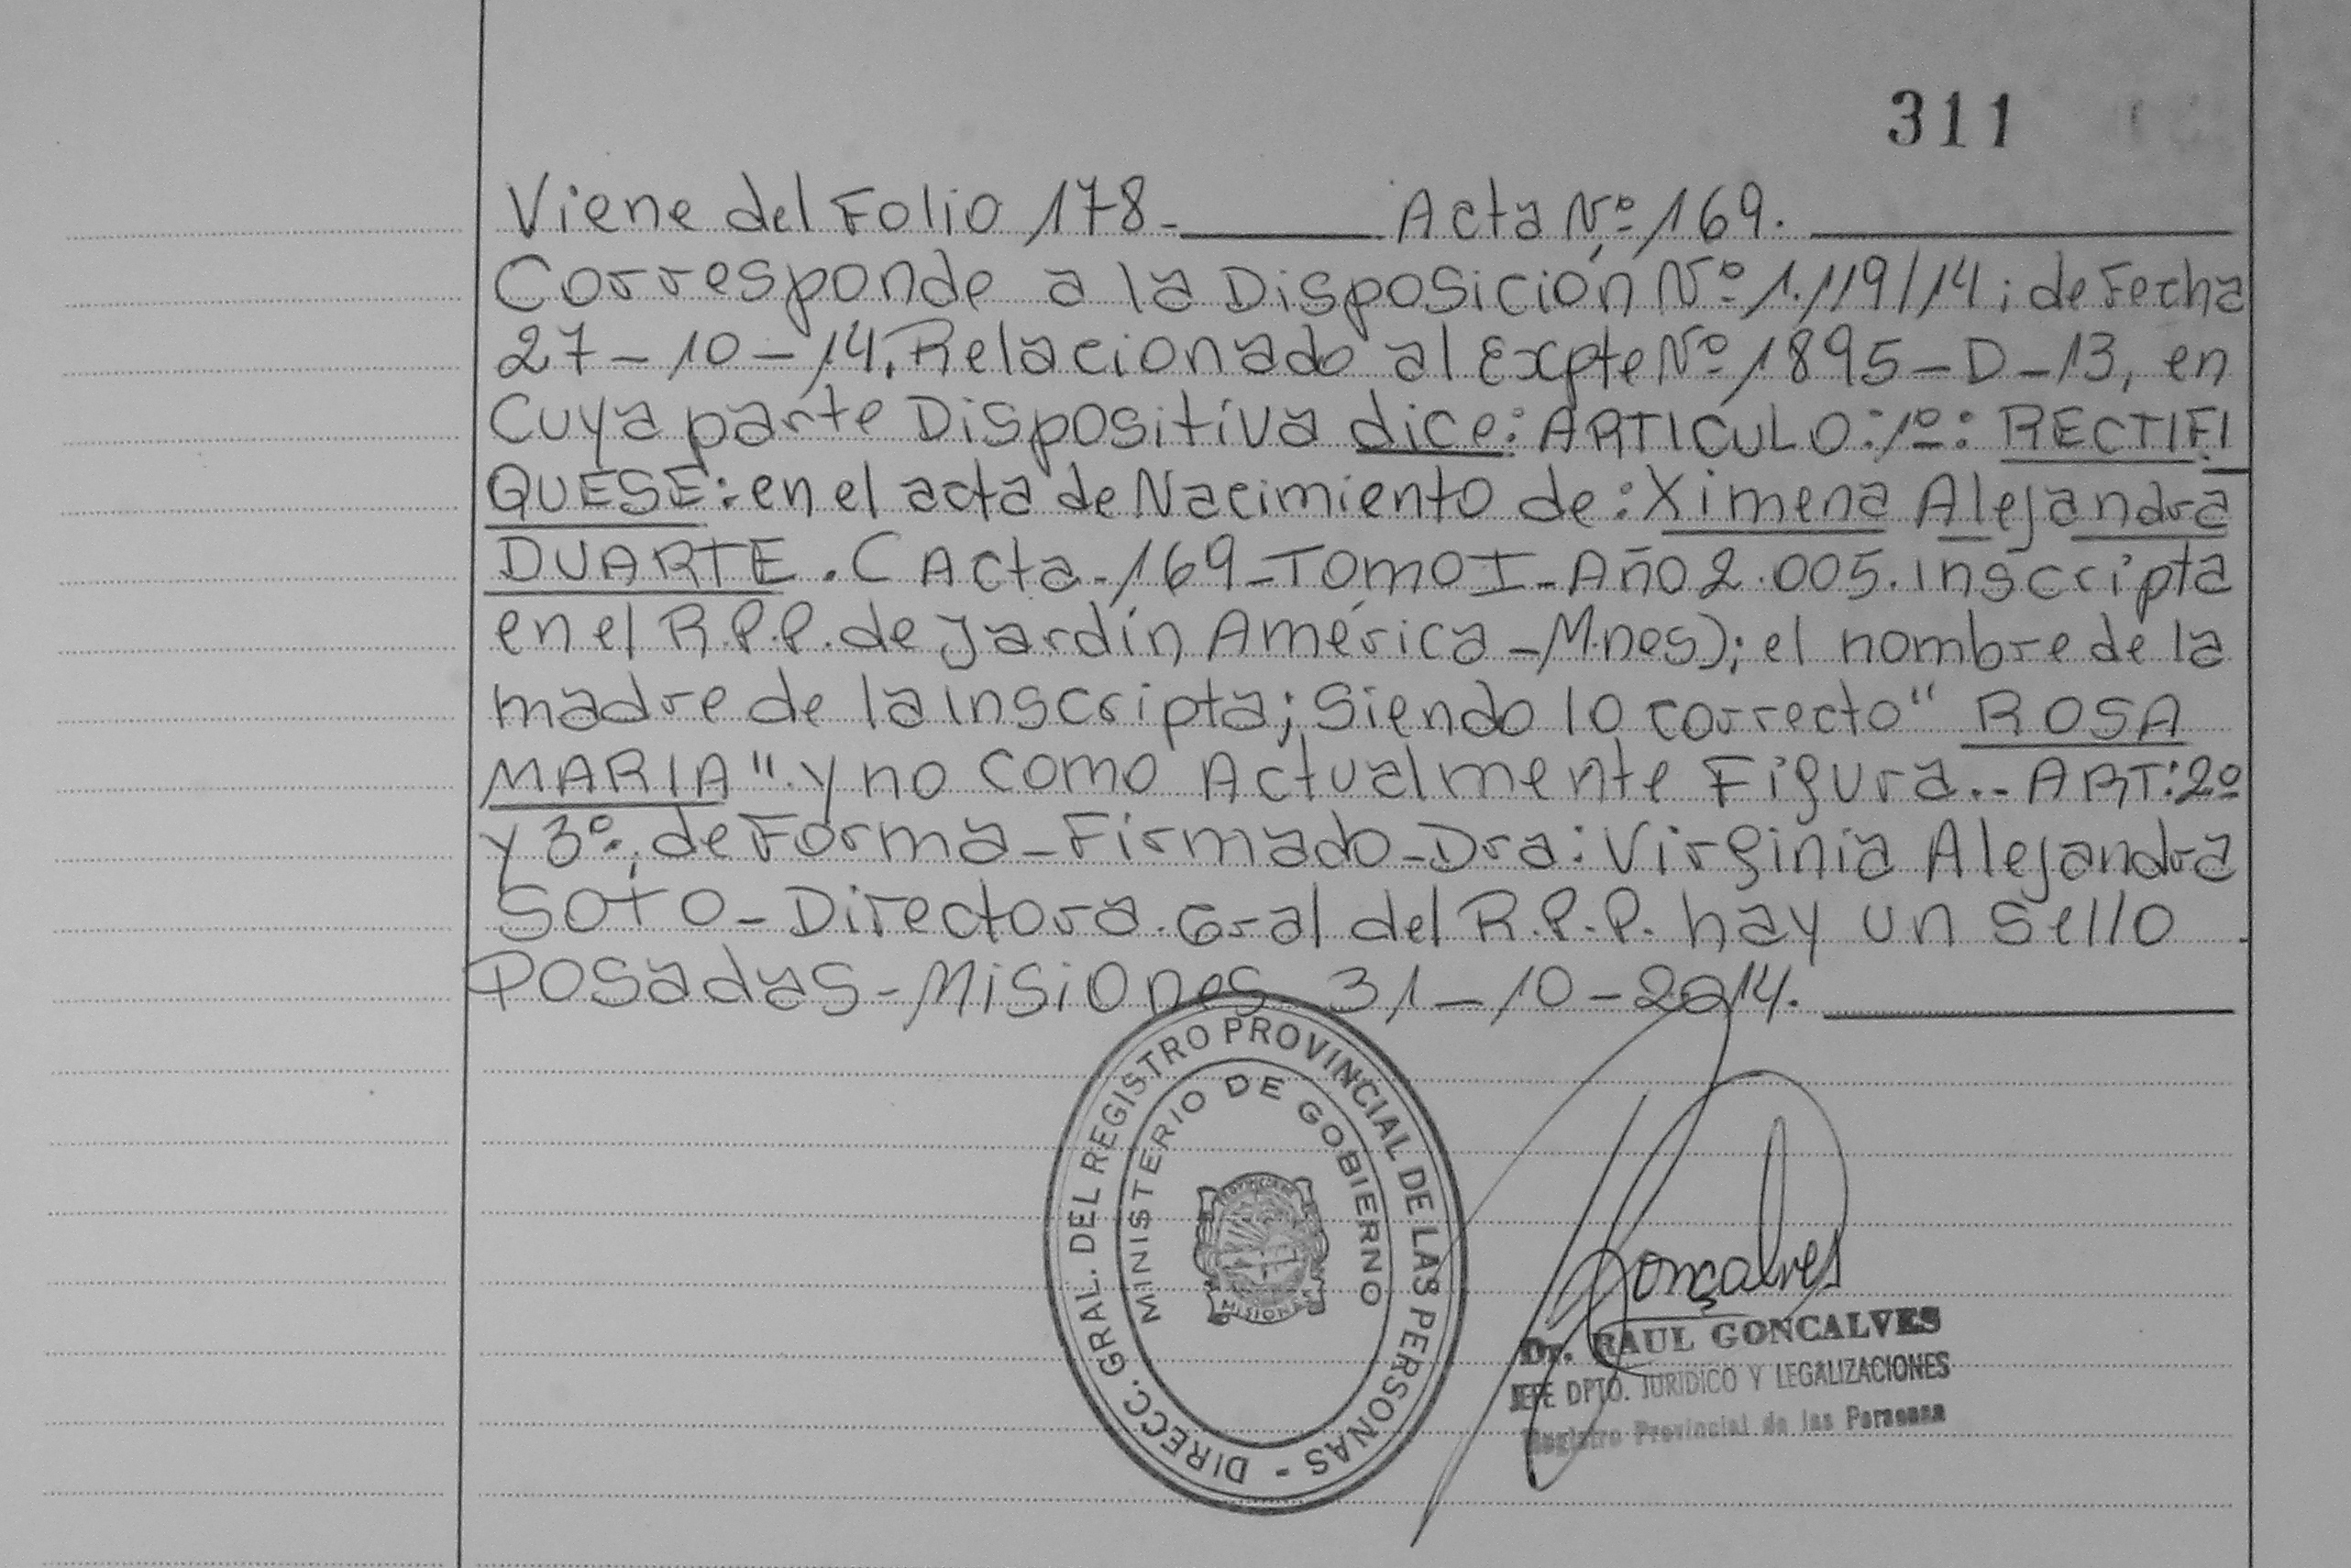 311
Viene del Folio 178.- Acta Nº 169.
Corresponde a la Disposición Nº 1.119/14; de Fecha
27-10-14. Relacionado al Expte Nº 1895-D-13, en
Cuya parte Dispositiva dice: ARTICULO: 1º: RECTIFI
QUESE: en el acta de Nacimiento de: Ximena Alejandra
DUARTE. (Acta-169-Tomo I-Año 2.005. Inscripta
en el R.P.P. de Jardín América-M.nes); el nombre de la
madre de la inscripta; Siendo lo correcto " ROSA
MARIA". y no como Actualmente Figura..- ART: 2º
y 3º; de Forma-Firmado-Dra: Virginia Alejandra
SOTO-Directora. Gral del R.P.P. hay un Sello.
Posadas-Misiones 31-10-2014.
DIRECC. GRAL. DEL REGISTRO PROVINCIAL DE LAS PERSONAS -
MINISTERIO DE GOBIERNO
MISIONES
Gonçalves
Dr. RAUL GONCALVES
JEFE DPTO. JURIDICO Y LEGALIZACIONES
Registro Provincial de las Personas